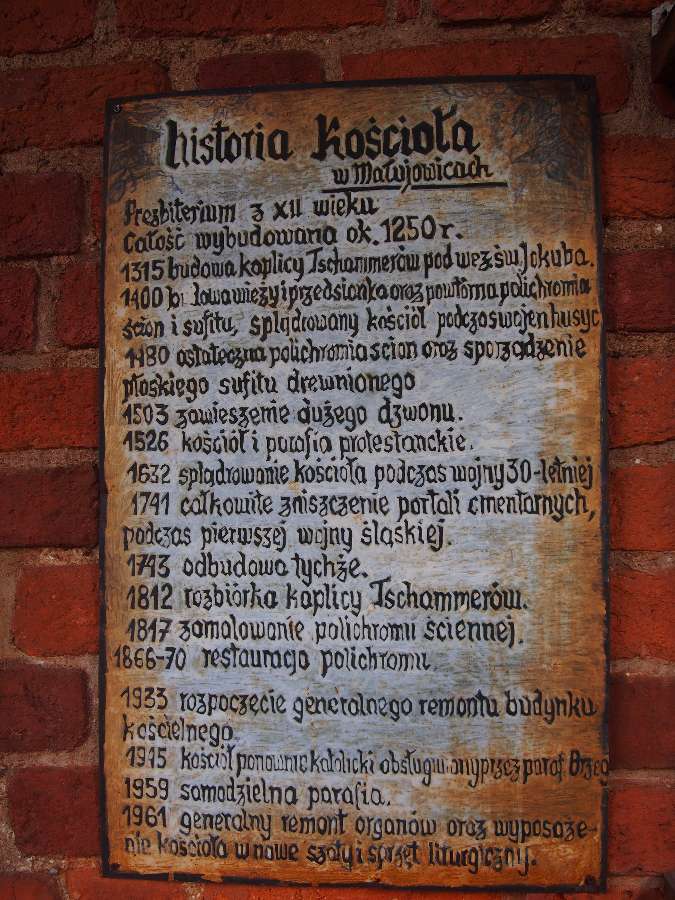 historia Kościoła
w Małujowicach
Prezbiterium z XII wieku
całość wybudowana ok. 1250 r.
1315 budowa kaplicy Tschammerów pod wez. św. Jakuba.
1400 budowa wieży i przedsionka oraz powtórna polichromia
ścian i sufitu, splądrowany kościół podczas wojen husyc
1480 ostateczna polichromia ścian oraz sporządzenie
płaskiego sufitu drewnionego
1503 zawieszenie dużego dzwonu.
1526 kościół i parafia protestanckie.
1632 splądrowanie kościoła podczas wojny 30-letniej
1741 całkowite zniszczenie portali cmentarnych,
podczas pierwszej wojny śląskiej.
1743 odbudowa tychże.
1812 rozbiórka kaplicy Tschammerów.
1817 zamalowanie polichromii ściennej.
1866-70 restauracja polichromii.
1933 rozpoczęcie generalnego remontu budynku
kościelnego.
1945 kościół ponownie katolicki obsługiwany przez paraf. Brzeg
1959 samodzielna parafia.
1961 generalny remont organów oraz wyposaże-
nie kościoła w nowe szaty i sprzęt liturgicznij.